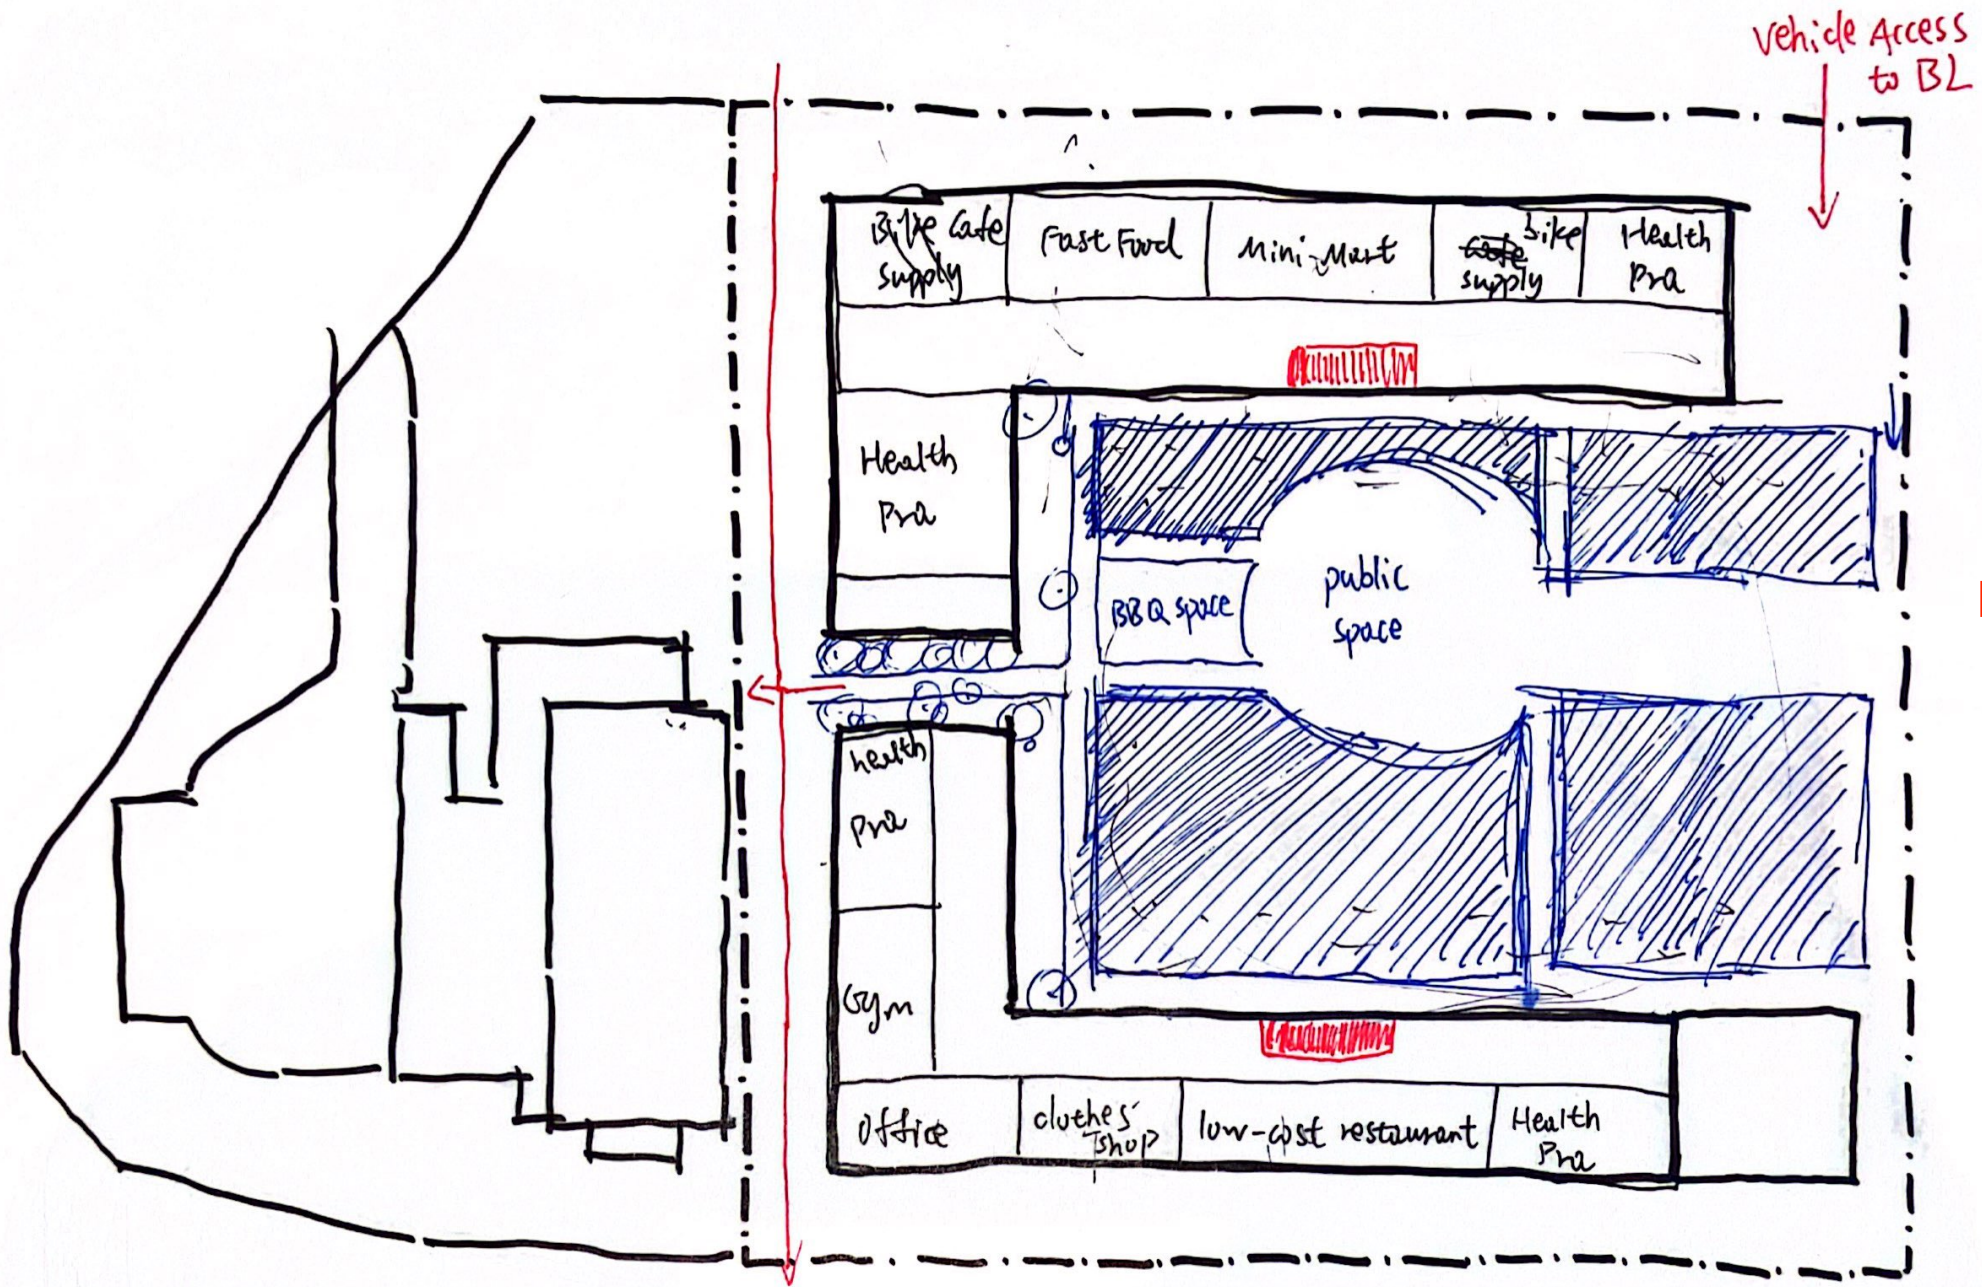 Vehicle Access
to BL
Bike Cafe
supply
Fast Food
Mini-Mart
bike
cafe
supply
Health
Pra
Health
Pra
public
space
BBQ space
health
pra
Gym
Office
clothes'
shop
low-cost restaurant
Health
Pra